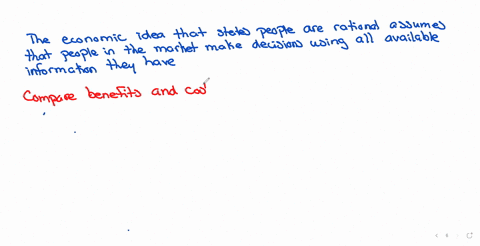 The economic idea that states people are rational assumes
that people in the market make decisions using all available
information they have
Compare benefits and cos